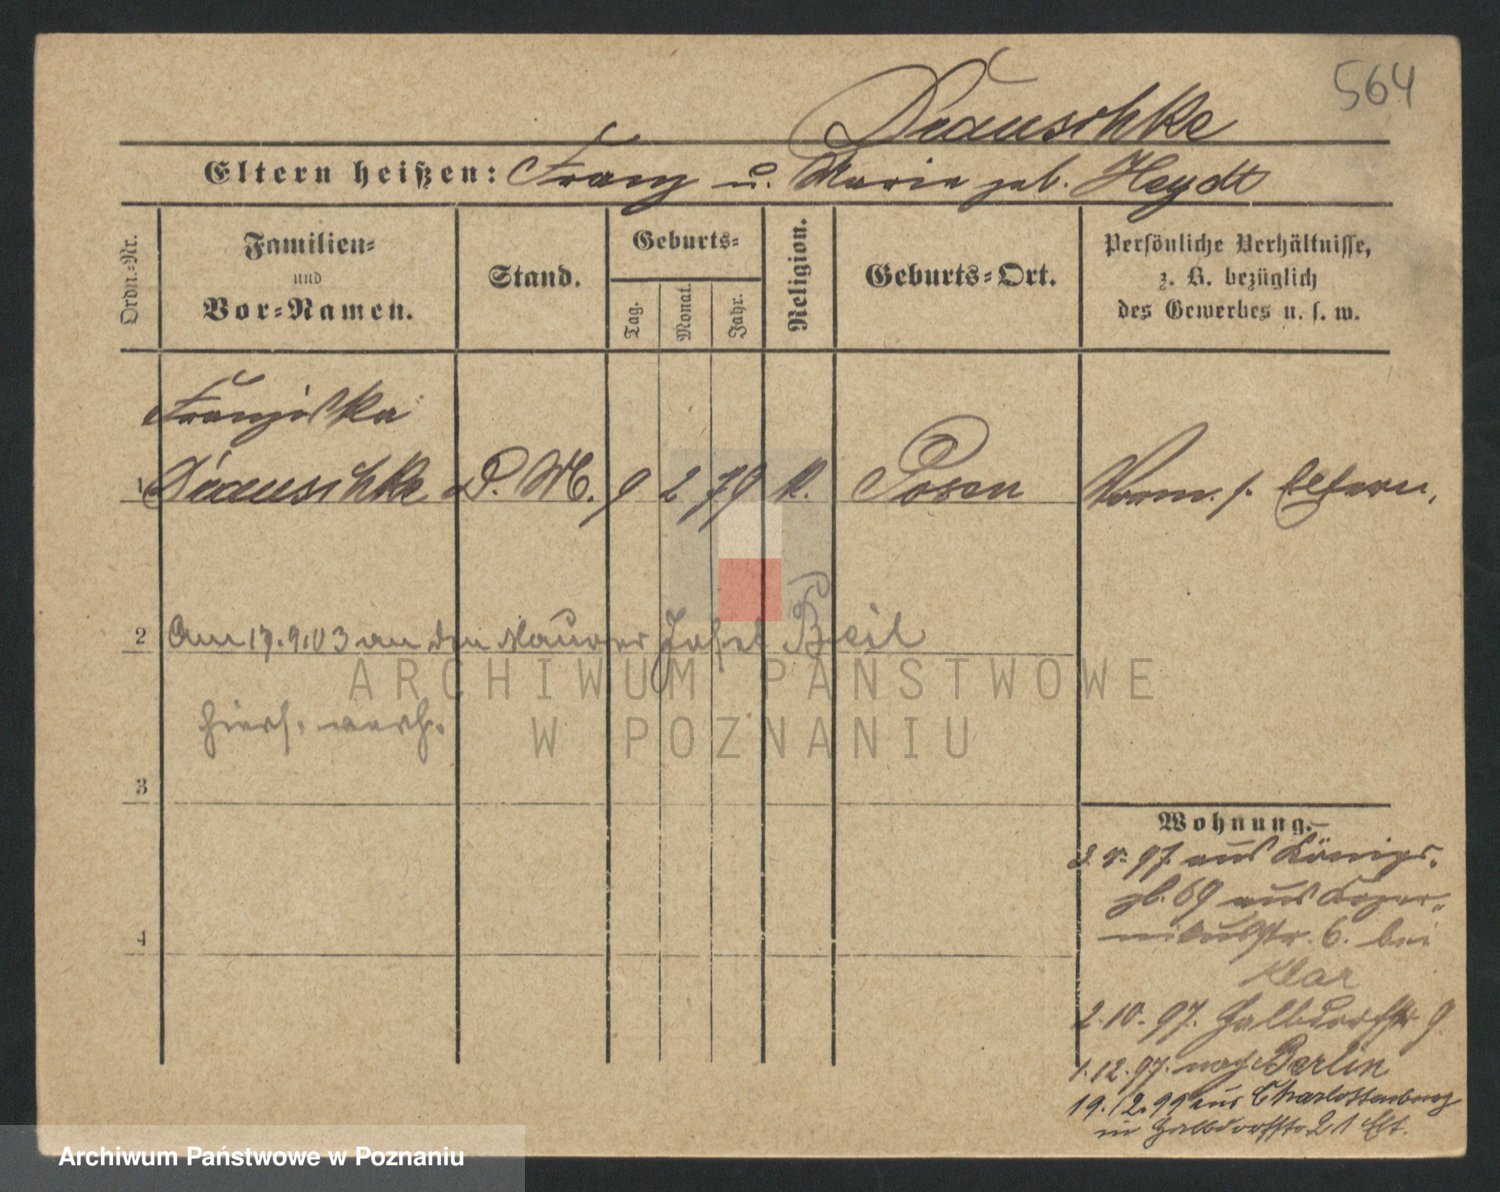 564
Deauschke
Eltern heißen: Franz u. Maria geb. Heydt
Ordn.-Nr.
Familien-
und
Vor-Namen.
Stand.
Geburts-
Tag.
Monat.
Jahr.
Religion.
Geburts-Ort.
Persönliche Verhältnisse,
z. B. bezüglich
des Gewerbes u. s. w.
Franziska
1 Deauschke D. M. 9 2 79 K. Posen Vorm. s. Eltern.
2 Am 17.9.03 an den Maurer Josef Beil
hiers. verh.
3
4
Wohnung.
97 aus Königs-
pl. 69 aus Koper-
nikusstr. 6. bei
Klar
2.10.97. Halbdorfstr 9.
1.12.97. nach Berlin
19.12.99 aus Charlottenburg
in Halbdorfstr 21 Elt.
ARCHIWUM PAŃSTWOWE
W POZNANIU
Archiwum Państwowe w Poznaniu